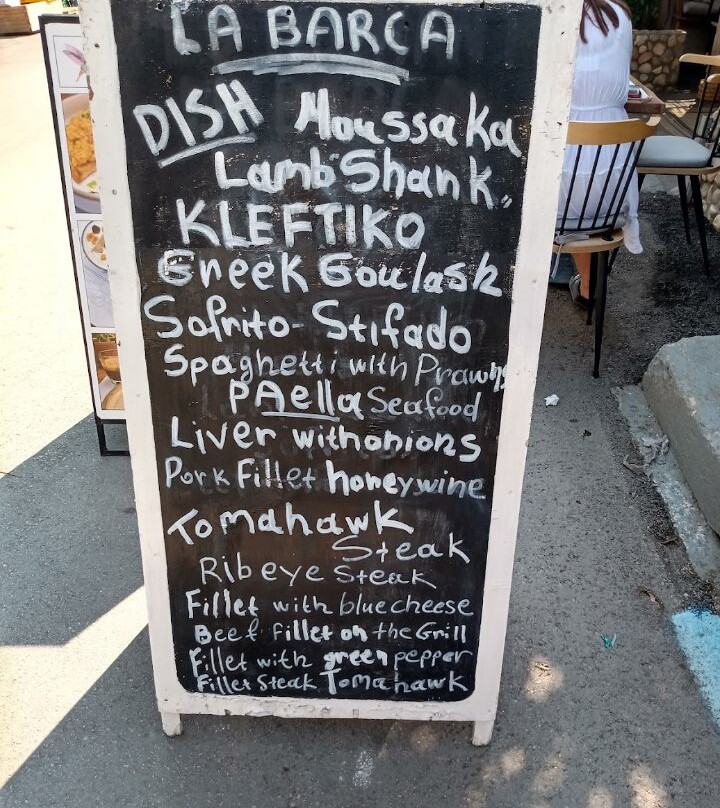 LA BARCA
DISH Moussaka
Lamb Shank
KLEFTIKO
Greek Goulash
Sofrito - Stifado
Spaghetti with Prawns
PAella Seafood
Liver with onions
Pork Fillet honey wine
Tomahawk
Steak
Rib eye Steak
Fillet with blue cheese
Beef fillet on the Grill
Fillet with green pepper
Fillet Steak Tomahawk